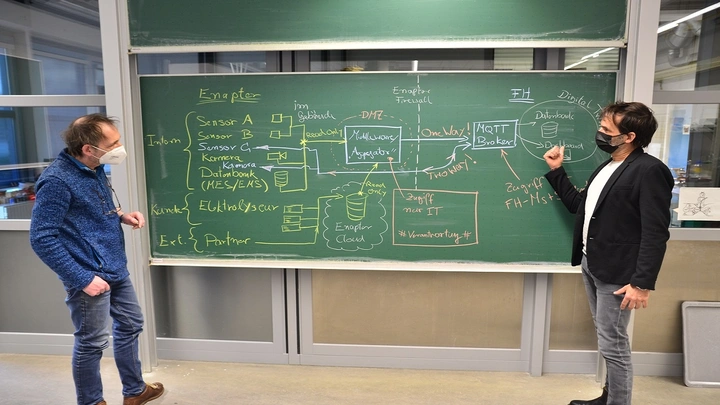 Enapter
Enapter
Firewall
FH
Digital
im
Gebäude
DMZ
Intern
Sensor A
Sensor B
Sensor C
Kamera
Kamera
Datenbank
(MES/EMS)
Read Only
Middleware
One Way!
Two Way!
MQTT
Broker
Datenbank
Kunde
Elektrolyseur
Ext.
Partner
Read
Only
Enapter
Cloud
Zugriff
nur IT
#Verantwortung#
Zugriff